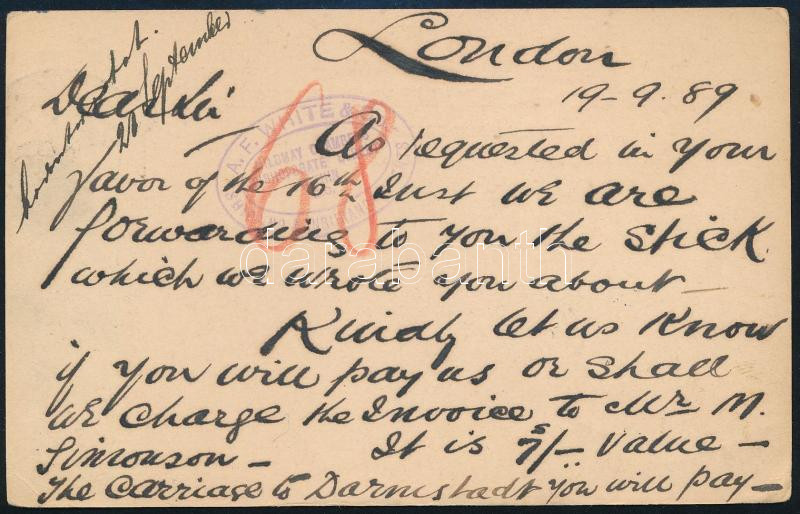 London
19-9.89
Dear Sir
As requested in your
favor of the 16th Inst we are
forwarding to you the stick
which we wrote you about—
Kindly let us know
if you will pay us or shall
we charge the Invoice to Mr. M.
Simonson— It is 7/- Value—
The Carriage to Darmstadt you will pay—
20 September
68
A. F. WHITE &
darabanth